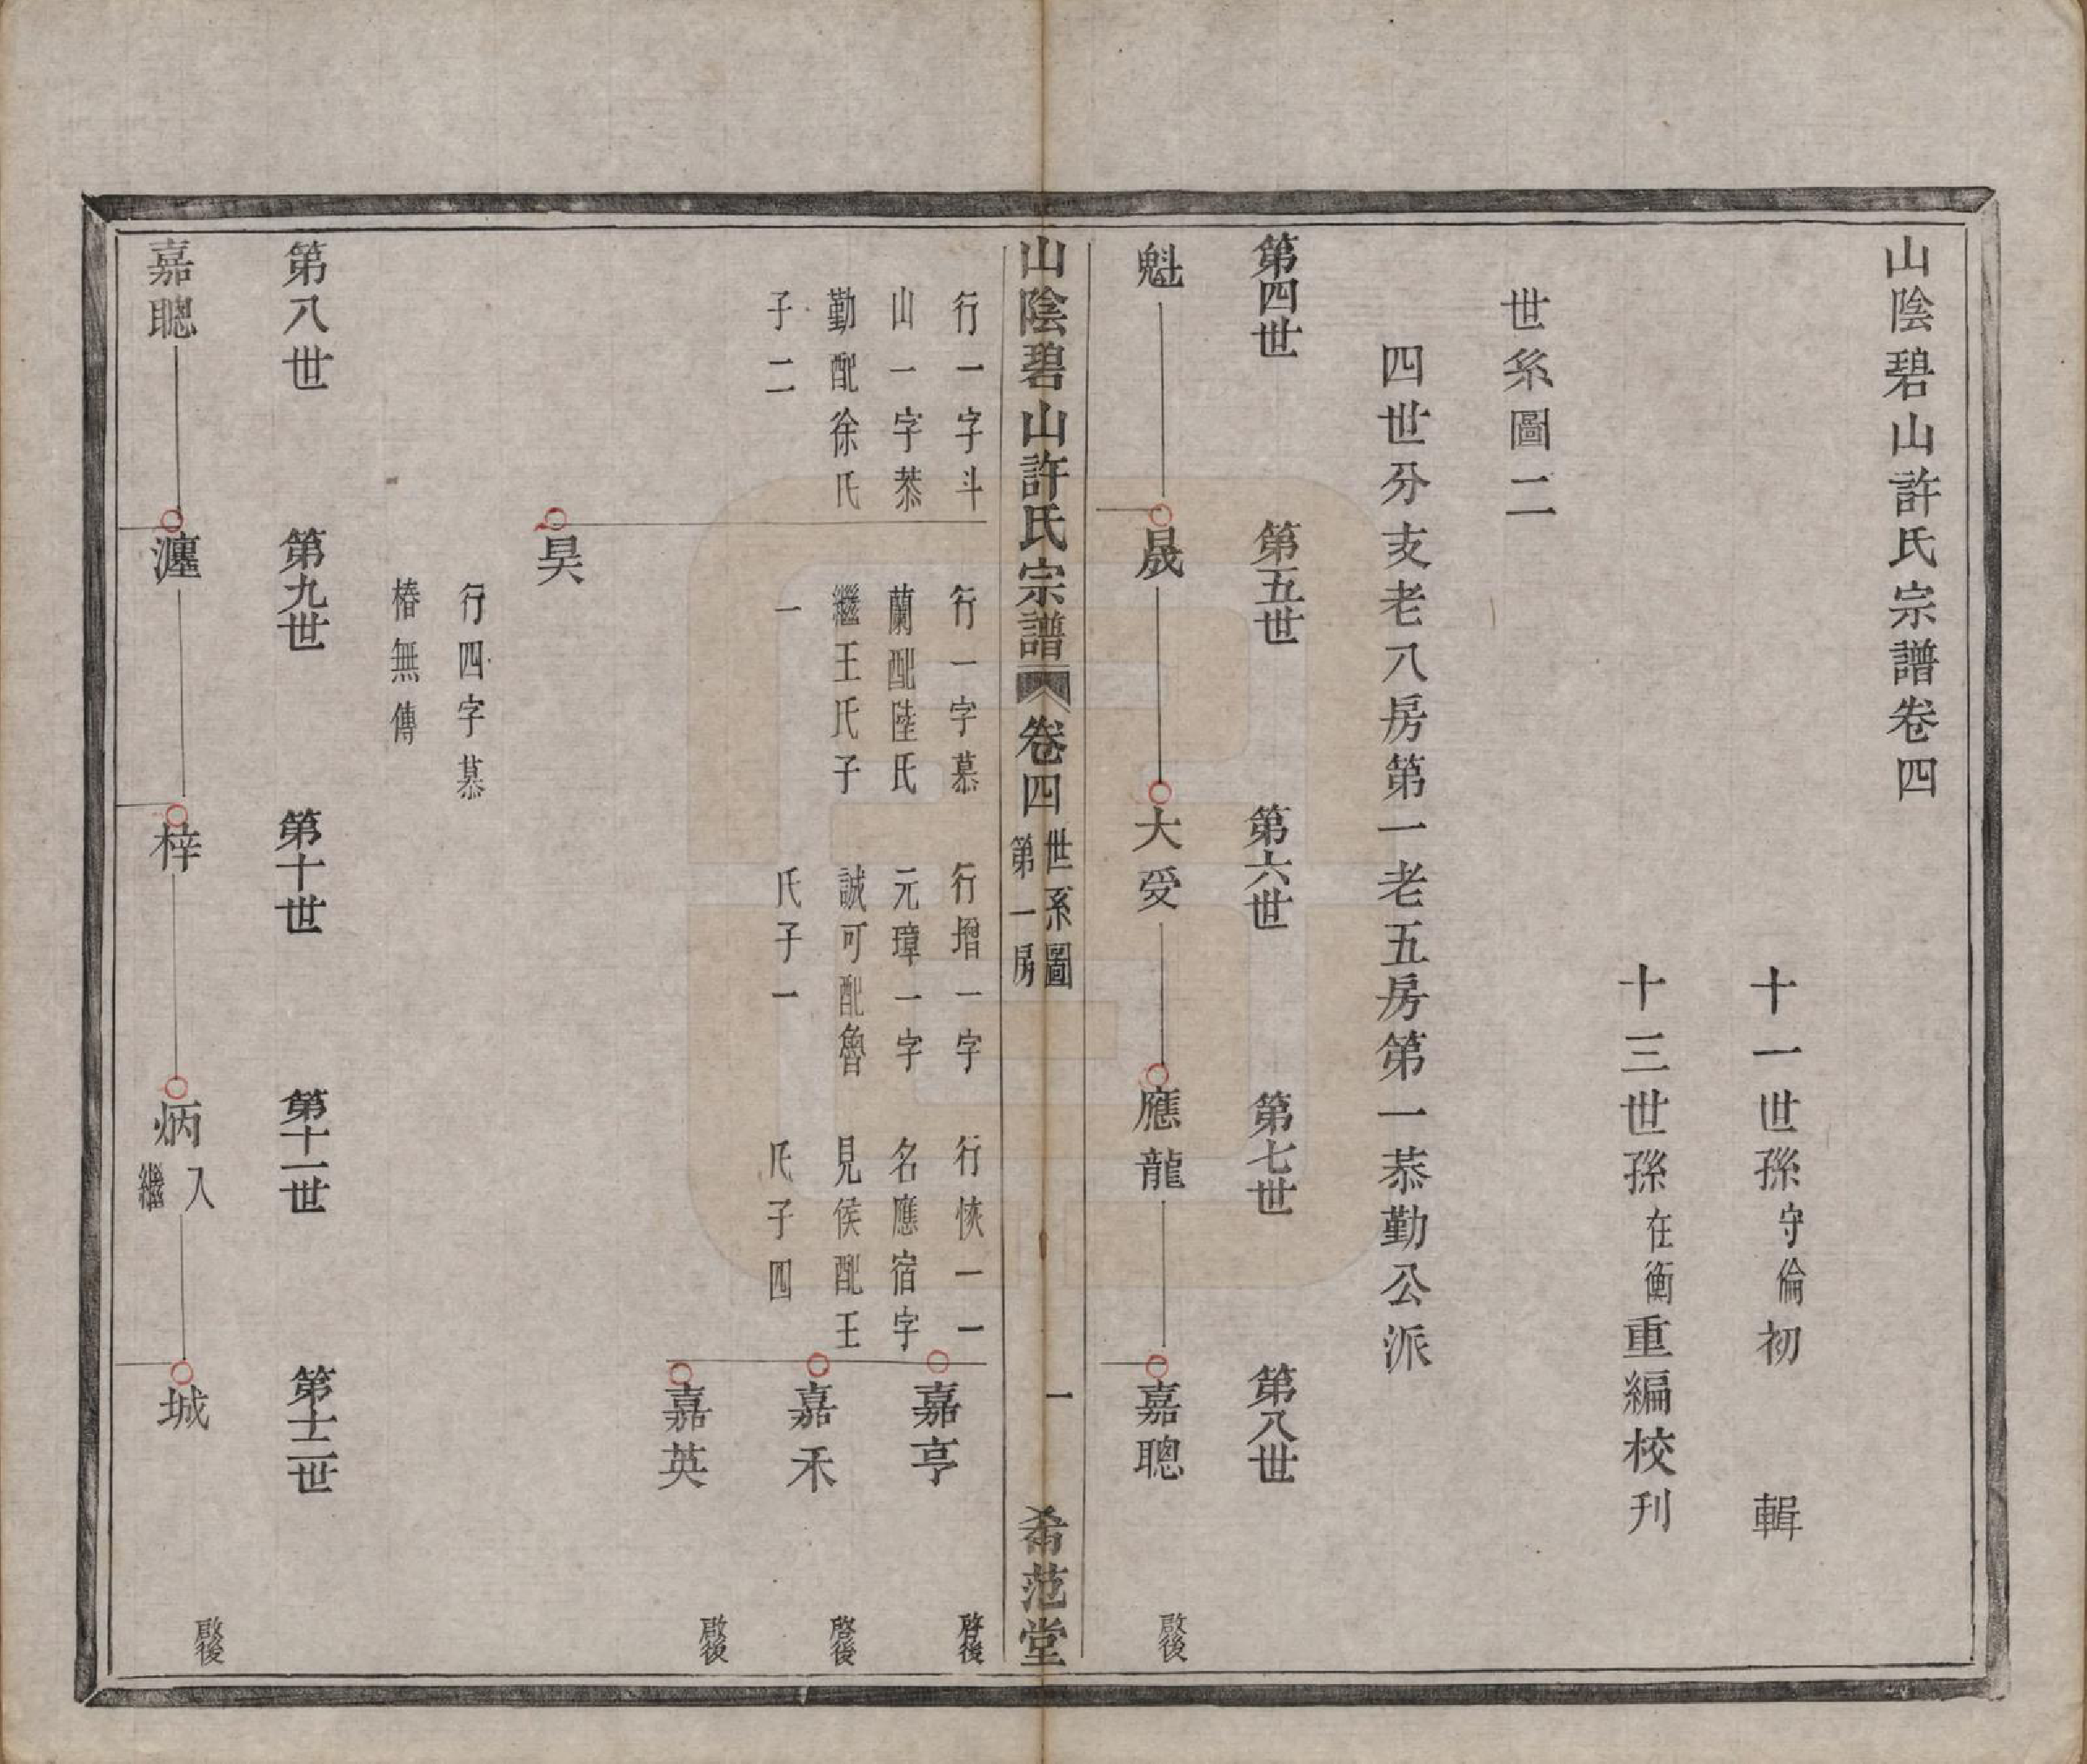 山陰碧山許氏宗譜卷四
十一世孫守倫初　輯
十三世孫在衡重編校刊
世系圖二
四世分支老八房第一老五房第一恭勤公派
第四世　第五世　第六世　第七世　第八世
魁　晟　大受　應龍　嘉聰　啟後
山陰碧山許氏宗譜　卷四　世系圖　第一房　一　希范堂
行一字斗　行一字慕　行增一字　行恢一一　嘉亨　啓後
山一字恭　蘭配陸氏　元璋一字　名應宿字
勤配徐氏　繼王氏子　誠可配魯　見侯配王　嘉禾　啓後
子二　一　氏子一　氏子四
嘉英　啟後
昊
行四字慕
椿無傳
第八世　第九世　第十世　第十一世　第十二世
嘉聰　瀍　梓　炳入繼　城　啟後